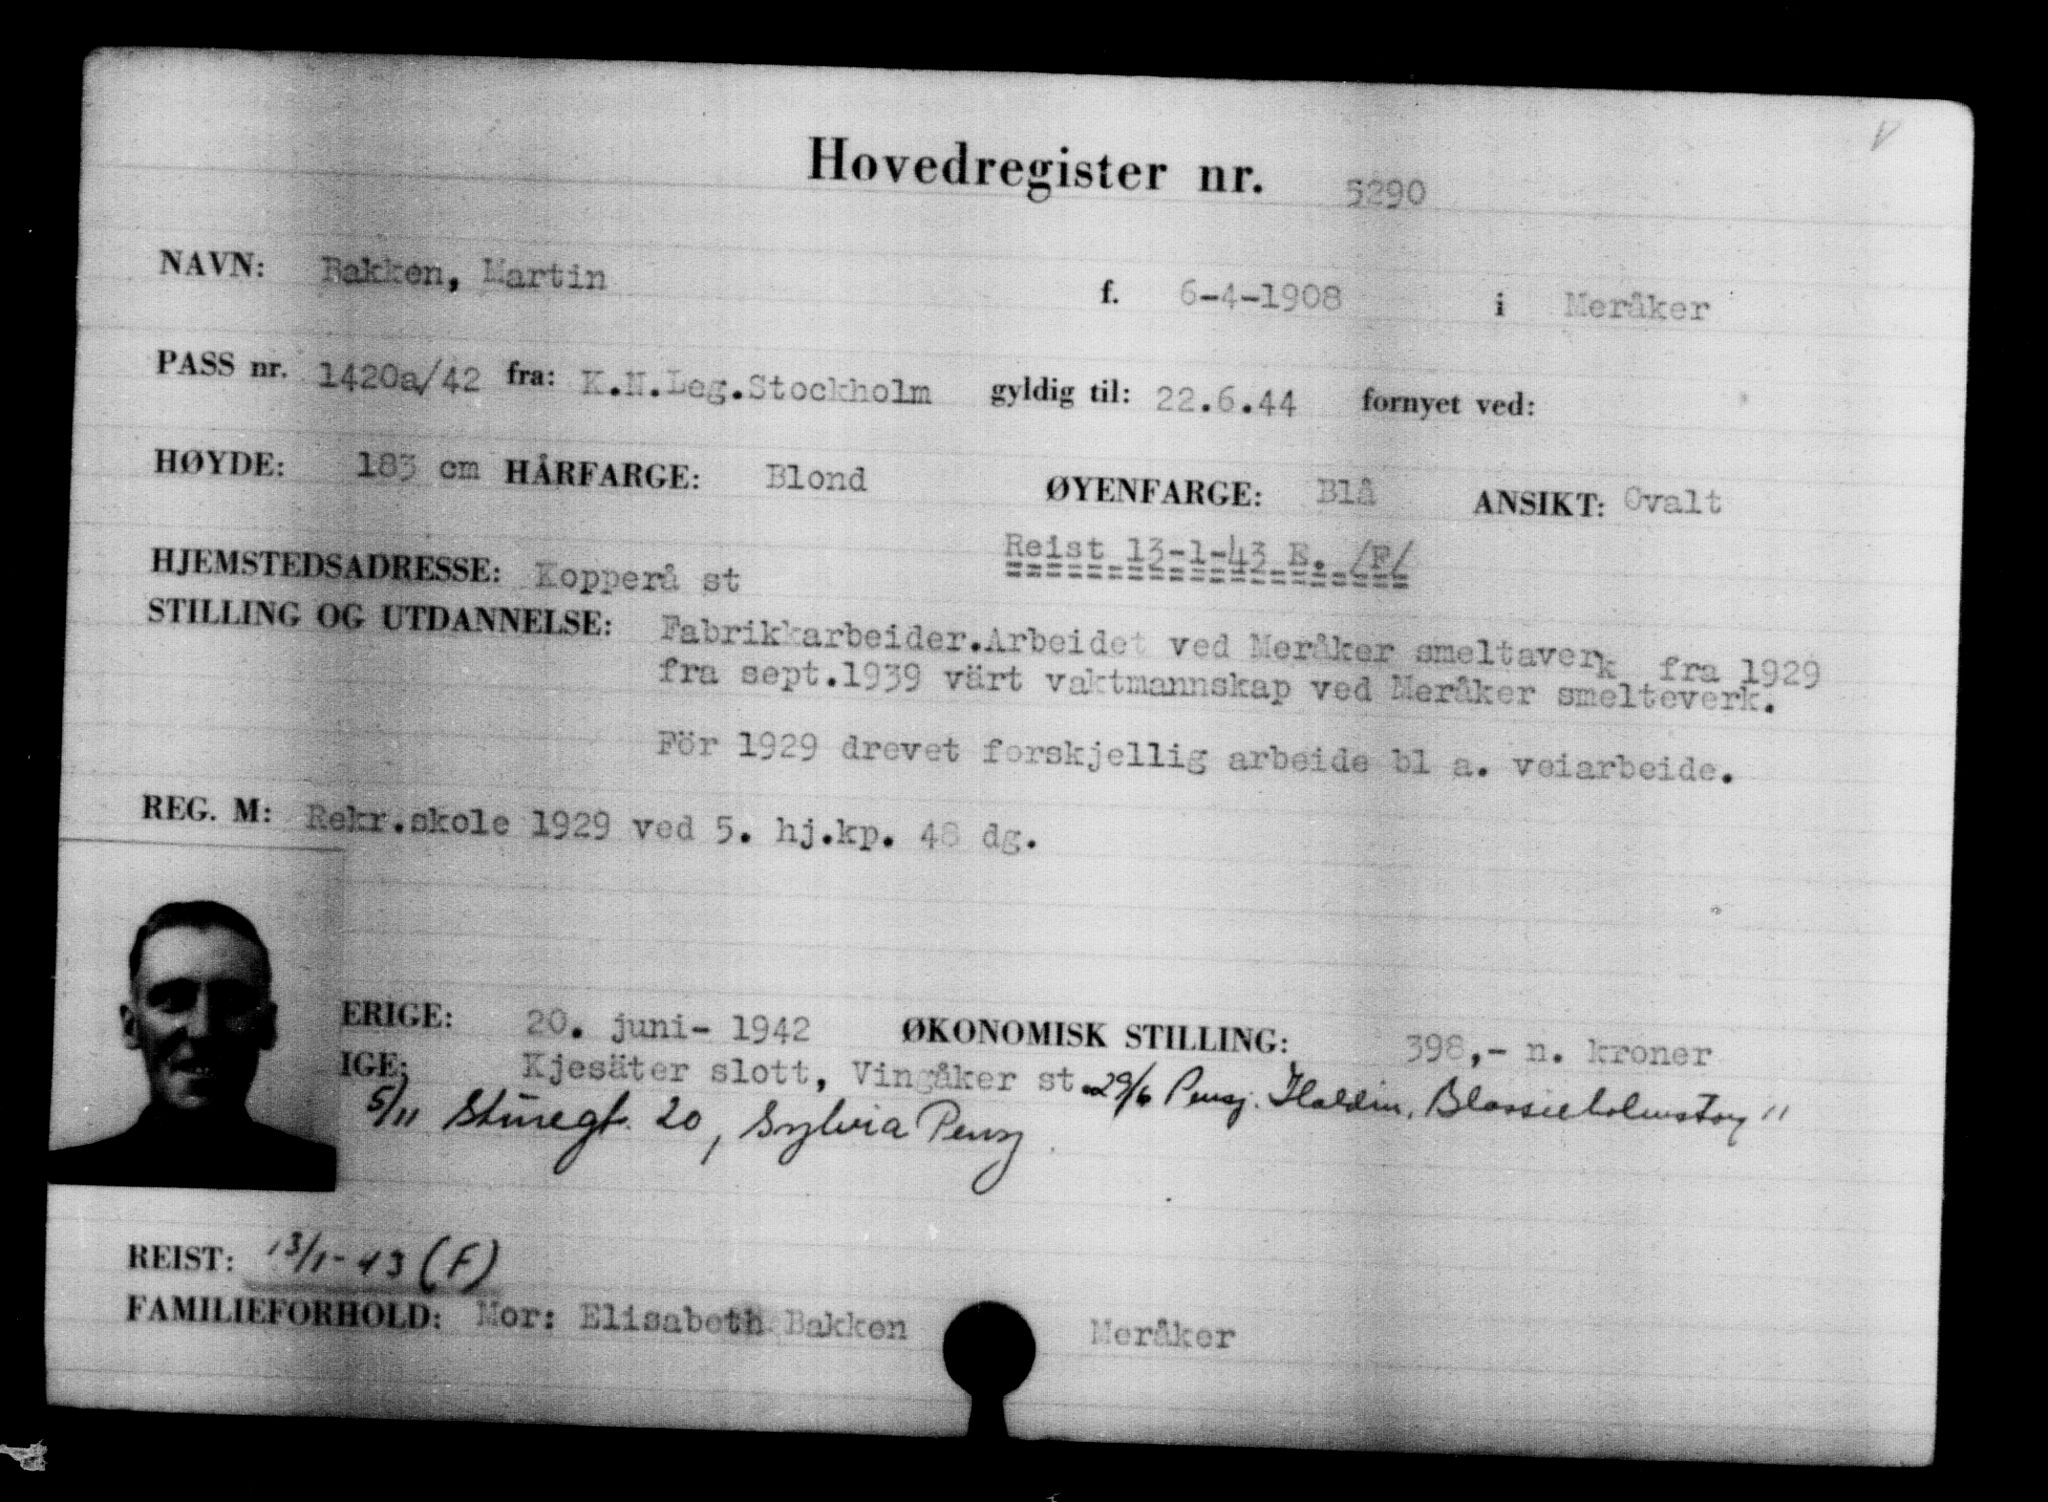 Hovedregister nr. 5290
NAVN: Bakken, Martin f. 6-4-1908 i Meråker
PASS nr. 1420a/42 fra: K.N.Leg.Stockholm gyldig til: 22.6.44 fornyet ved:
HØYDE: 183 cm HÅRFARGE: Blond ØYENFARGE: Blå ANSIKT: Ovalt
Reist 13-1-43 E. /F/
HJEMSTEDSADRESSE: Kopperå st
STILLING OG UTDANNELSE: Fabrikkarbeider.Arbeidet ved Meråker smeltaverk fra 1929
fra sept.1939 värt vaktmannskap ved Meråker smelteverk.
För 1929 drevet forskjellig arbeide bl a. veiarbeide.
REG. M: Rekr.skole 1929 ved 5. hj.kp. 48 dg.
ERIGE: 20. juni- 1942 ØKONOMISK STILLING: 398,- n. kroner
IGE: Kjesäter slott, Vingåker st. 29/6 Pensj. Blasieholmstorg 11
5/11 Sturegt. 20, Sylvia Pensj
REIST: 13/1-43 (F)
FAMILIEFORHOLD: Mor: Elisabeth Bakken Meråker